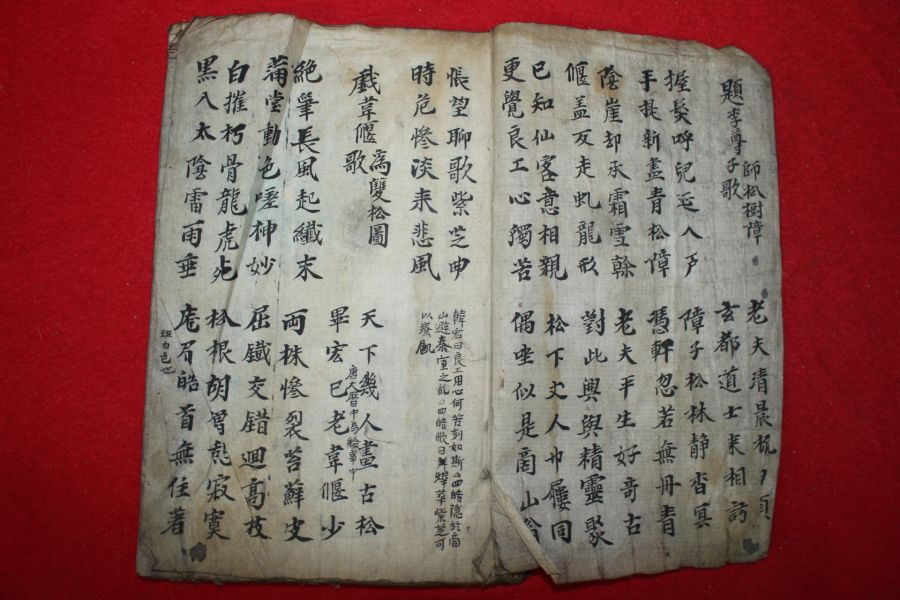 題李尊師松樹障子歌
老夫清晨梳白頭
玄都道士来相訪
握髮呼兒延入戶
手提新畫青松障
障子松林静杳冥
憑軒忽若無丹青
陰崖却承霜雪幹
偃盖反走虬龍形
老夫平生好奇古
對此興與精靈聚
已知仙客意相親
更覺良工心獨苦
松下丈人巾屨同
偶坐似是商山翁
悵望聊歌紫芝曲
時危慘淡来悲風
韓宏曰良工用心何苦刻如斯四皓隐於商
山避秦室之乱四皓歌曰曄〃華紫芝可
以療飢
戲韋偃為雙松圖歌
天下幾人畫古松
畢宏已老韋偃少
唐大曆中為給事中
絶筆長風起纖末
滿堂動色嗟神妙
両株慘裂苔蘚皮
屈鐵交錯迴高枝
白摧朽骨龍虎死
黑入太陰雷雨垂
松根胡僧憩寂寞
庬眉皓首無住著
班白色也